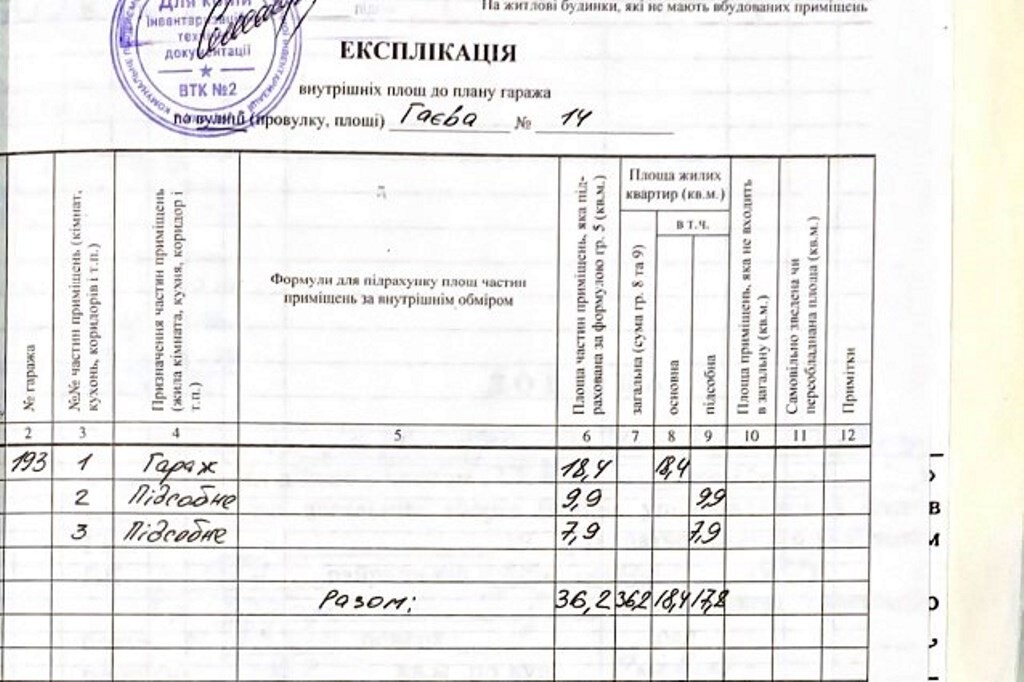 На житлові будинки, які не мають вбудованих приміщень
Для копій
інвентаризаційної
документації
ВТК №2
ЕКСПЛІКАЦІЯ
внутрішніх площ до плану гаража
по вулиці (провулку, площі) Гаєва № 14
№ гаража
№№ частин приміщень (кімнат, кухонь, коридорів і т.п.)
Призначення частин приміщень (жила кімната, кухня, коридор і т.п.)
Формули для підрахунку площ частин
приміщень за внутрішнім обміром
Площа частин приміщень, яка підрахована за формулою гр. 5 (кв.м.)
Площа жилих
квартир (кв.м.)
загальна (сума гр. 8 та 9)
в т.ч.
основна
підсобна
Площа приміщень, яка не входить в загальну (кв.м.)
Самовільно зведена чи переобладнана площа (кв.м.)
Примітки
2 3 4 5 6 7 8 9 10 11 12
193 1 Гараж 18,4 18,4
2 Підсобне 9,9 9,9
3 Підсобне 7,9 7,9
Разом: 36,2 36,2 18,4 17,8